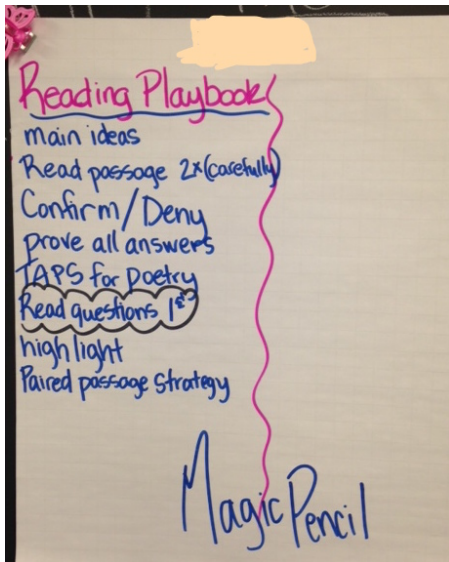 Reading Playbook
main ideas
Read passage 2x (carefully)
Confirm/Deny
prove all answers
TAPS for Poetry
Read questions 1st
highlight
Paired passage strategy
Magic Pencil